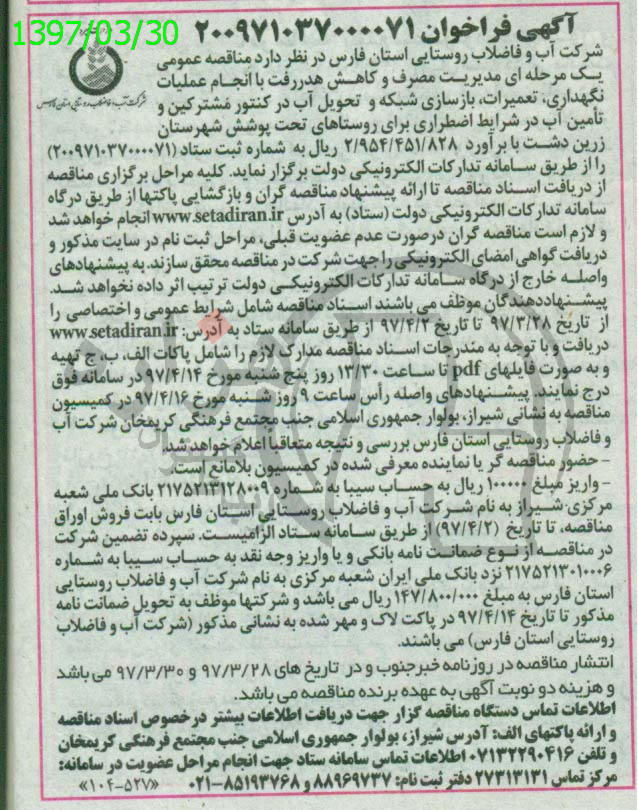 1397/03/30
آگهی فراخوان ۲۰۰۹۷۱۰۳۷۰۰۰۰۷۱
شرکت آب و فاضلاب روستایی استان فارس در نظر دارد مناقصه عمومی
یک مرحله ای مدیریت مصرف و کاهش هدررفت با انجام عملیات
نگهداری، تعمیرات، بازسازی شبکه و تحویل آب در کنتور مشترکین و
شرکت آب و فاضلاب روستایی استان فارس
تأمین آب در شرایط اضطراری برای روستاهای تحت پوشش شهرستان
زرین دشت با برآورد ۲/۹۵۴/۴۵۱/۸۲۸ ریال به شماره ثبت ستاد (۲۰۰۹۷۱۰۳۷۰۰۰۰۷۱)
را از طریق سامانه تدارکات الکترونیکی دولت برگزار نماید. کلیه مراحل برگزاری مناقصه
از دریافت اسناد مناقصه تا ارائه پیشنهاد مناقصه گران و بازگشایی پاکتها از طریق درگاه
سامانه تدارکات الکترونیکی دولت (ستاد) به آدرس www.setadiran.ir انجام خواهد شد
و لازم است مناقصه گران درصورت عدم عضویت قبلی، مراحل ثبت نام در سایت مذکور و
دریافت گواهی امضای الکترونیکی را جهت شرکت در مناقصه محقق سازند. به پیشنهادهای
واصله خارج از درگاه سامانه تدارکات الکترونیکی دولت ترتیب اثر داده نخواهد شد.
پیشنهاددهندگان موظف می باشند اسناد مناقصه شامل شرایط عمومی و اختصاصی را
از تاریخ ۹۷/۳/۲۸ تا تاریخ ۹۷/۴/۲ از طریق سامانه ستاد به آدرس: www.setadiran.ir
دریافت و با توجه به مندرجات اسناد مناقصه مدارک لازم را شامل پاکات الف، ب، ج تهیه
و به صورت فایلهای pdf تا ساعت ۱۳/۳۰ روز پنج شنبه مورخ ۹۷/۴/۱۴ در سامانه فوق
درج نمایند. پیشنهادهای واصله رأس ساعت ۹ روز شنبه مورخ ۹۷/۴/۱۶ در کمیسیون
مناقصه به نشانی شیراز، بولوار جمهوری اسلامی جنب مجتمع فرهنگی کریمخان شرکت آب
و فاضلاب روستایی استان فارس بررسی و نتیجه متعاقباً اعلام خواهد شد.
- حضور مناقصه گر یا نماینده معرفی شده در کمیسیون بلامانع است.
- واریز مبلغ ۱۰۰۰۰۰۱ ریال به حساب سیبا به شماره ۲۱۷۵۲۱۳۱۲۸۰۰۹ بانک ملی شعبه
مرکزی شیراز به نام شرکت آب و فاضلاب روستایی استان فارس بابت فروش اوراق
مناقصه، تا تاریخ (۹۷/۴/۲) از طریق سامانه ستاد الزامیست. سپرده تضمین شرکت
در مناقصه از نوع ضمانت نامه بانکی و یا واریز وجه نقد به حساب سیبا به شماره
۲۱۷۵۲۱۳۰۱۰۰۰۶ نزد بانک ملی ایران شعبه مرکزی به نام شرکت آب و فاضلاب روستایی
استان فارس به مبلغ ۱۴۷/۸۰۰/۰۰۰ ریال می باشد و شرکتها موظف به تحویل ضمانت نامه
مذکور تا تاریخ ۹۷/۴/۱۴ در پاکت لاک و مهر شده به نشانی مذکور (شرکت آب و فاضلاب
روستایی استان فارس) می باشند.
انتشار مناقصه در روزنامه خبرجنوب و در تاریخ های ۹۷/۳/۲۸ و ۹۷/۳/۳۰ می باشد
و هزینه دو نوبت آگهی به عهده برنده مناقصه می باشد.
اطلاعات تماس دستگاه مناقصه گزار جهت دریافت اطلاعات بیشتر درخصوص اسناد مناقصه
و ارائه پاکتهای الف: آدرس شیراز، بولوار جمهوری اسلامی جنب مجتمع فرهنگی کریمخان
و تلفن ۰۷۱۳۲۲۹۰۴۱۶ اطلاعات تماس سامانه ستاد جهت انجام مراحل عضویت در سامانه:
مرکز تماس ۲۷۳۱۳۱۳۱ دفتر ثبت نام: ۸۸۹۶۹۷۳۷ و ۸۵۱۹۳۷۶۸-۰۲۱ «۱۰۴-۵۲۷»